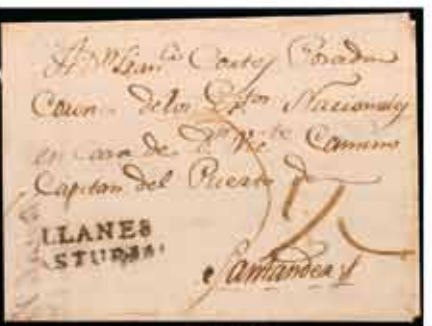 A Dn Franco Cortes Posada
Coronel de los Extos Nacionales
en Casa de Dn Vic.te Camino
Capitan del Puerto de
LLANES
ASTURIAS
Santander